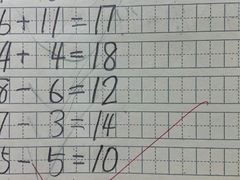 6+11=17
4+4=18
8-6=12
7-3=14
5-5=10